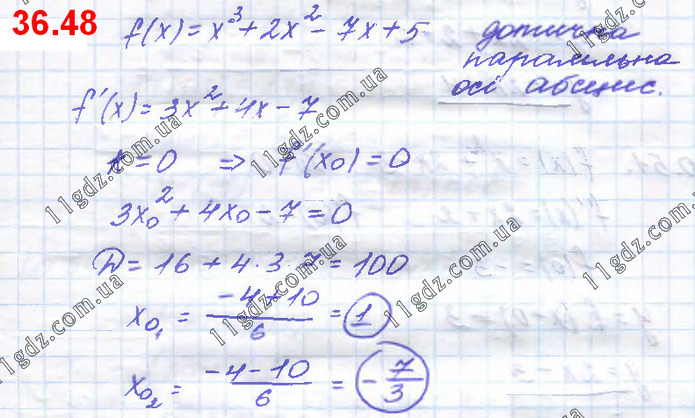 36.48
f(x) = x³ + 2x² - 7x + 5
дотична
паралельна
осі абсцис.
f'(x) = 3x² + 4x - 7
k = 0 ⇒ f'(x₀) = 0
3x₀² + 4x₀ - 7 = 0
D = 16 + 4·3·7 = 100
x₀₁ = (-4+10)/6 = 1
x₀₂ = (-4-10)/6 = -7/3
11gdz.com.ua
11gdz.com.ua
11gdz.com.ua
11gdz.com.ua
11gdz.com.ua
11gdz.com.ua
11gdz.com.ua